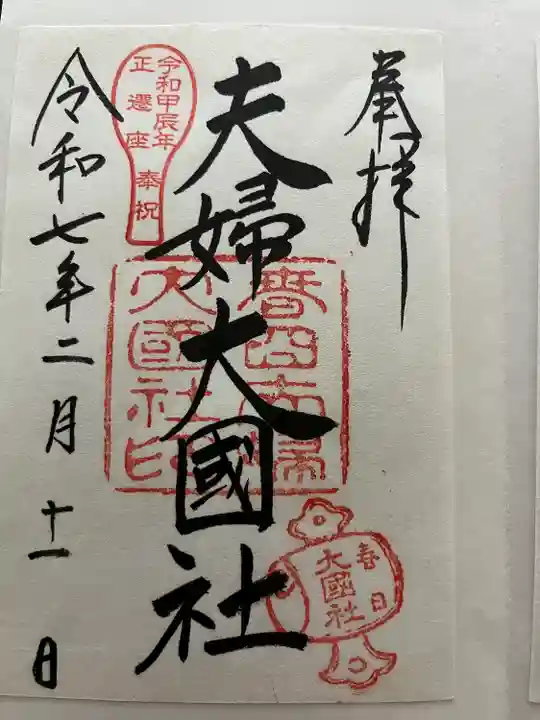 奉拝
夫婦大國社
令和甲辰年
正遷座
奉祝
春日
大國社
大國社印
令和七年二月十一日